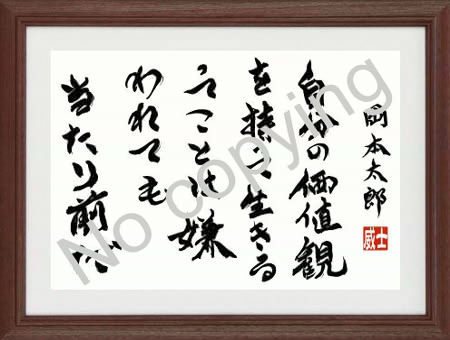 岡本太郎
士威
自分の価値観
を持って生きる
ってことは嫌
われても
当たり前だ
No copying